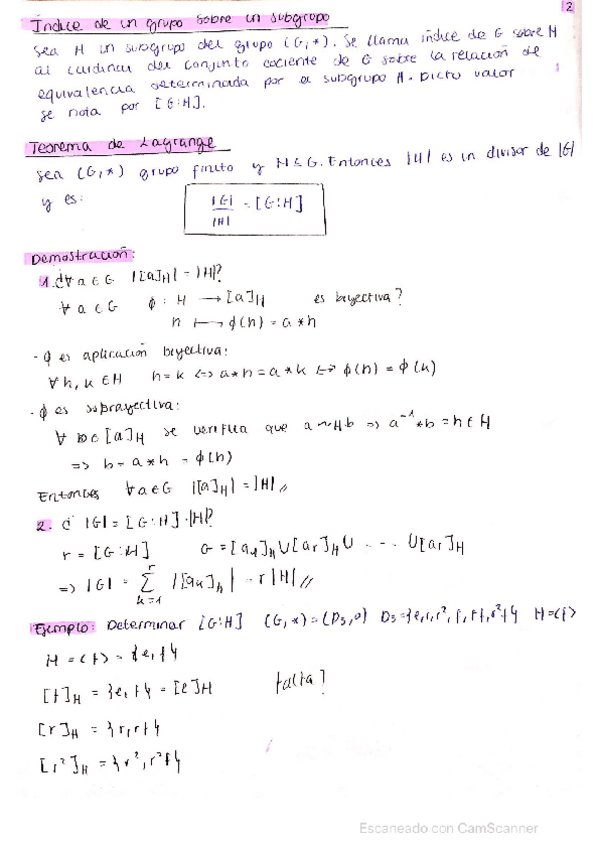 2
Índice de un grupo sobre un subgrupo
Sea H un subgrupo del grupo (G,*). Se llama índice de G sobre H
al cardinal del conjunto cociente de G sobre la relación de
equivalencia determinada por el subgrupo H. Dicho valor
se nota por [G:H].
Teorema de Lagrange
Sea (G,*) grupo finito y H≤G. Entonces |H| es un divisor de |G|
y es: |G|/|H| = [G:H]
Demostración:
1. ¿∀a∈G |[a]H| = |H|?
∀a∈G ϕ: H ⟶ [a]H es biyectiva?
h ⟼ ϕ(h) = a*h
- ϕ es aplicación biyectiva:
∀h,k∈H h=k ⟺ a*h = a*k ⟺ ϕ(h) = ϕ(k)
- ϕ es sobrayectiva:
∀b∈[a]H se verifica que a~Hb => a⁻¹*b = h∈H
=> b = a*h = ϕ(h)
Entonces ∀a∈G |[a]H| = |H| //
2. ¿|G| = [G:H]·|H|?
r = [G:H] G = [a1]H ∪ [ar]H ∪ --- ∪ [ar]H
=> |G| = Σ_{k=1}^{r} |[ak]H| = r|H| //
Ejemplo: Determinar [G:H] (G,*) = (D3,o) D3={e,r,r²,f,rf,r²f} H=⟨f⟩
H = ⟨f⟩ = {e,f}
[f]H = {e,f} = [e]H falta?
[r]H = {r,rf}
[r²]H = {r²,r²f}
Escaneado con CamScanner